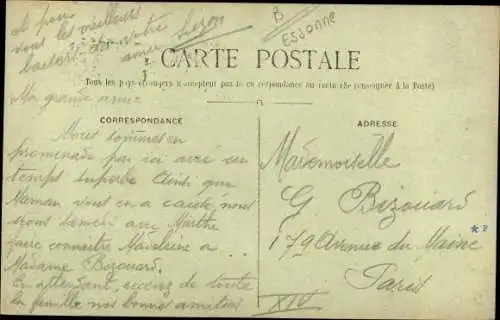 et pour
vous les meilleurs
baisers de votre
amie Suzon
B
Essonne
CARTE POSTALE
Tous les pays étrangers n'acceptent pas la correspondance au recto (Se renseigner à la Poste)
Ma grande amie
CORRESPONDANCE
Nous sommes en
promenade par ici avec un
temps superbe Ainsi que
Maman vous en a causé, nous
irons demain avec Marthe
faire connaître Madeleine à
Madame Bizouard.
En attendant, recevez de toute
la famille nos bonnes amitiés
ADRESSE
Mademoiselle
G Bizouard
179 Avenue du Maine
Paris
XIV